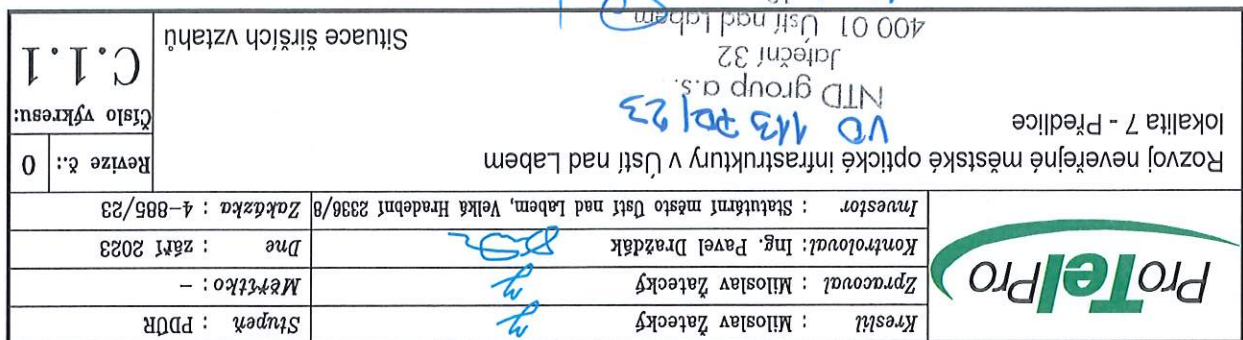 ProTelPro
Kreslil : Miloslav Žatecký
Stupeň : PDÚR
Zpracoval : Miloslav Žatecký
Měřítko : -
Kontroloval: Ing. Pavel Draždák
Dne : září 2023
Investor : Statutární město Ústí nad Labem, Velká Hradební 2336/8
Zakázka : 4-885/23
Rozvoj neveřejné městské optické infrastruktury v Ústí nad Labem
lokalita 7 - Předlice
Revize č.: 0
VD 113 PD/23
NTD group a.s.
Jateční 32
400 01 Ústí nad Labem
Situace širších vztahů
Číslo výkresu:
C.1.1